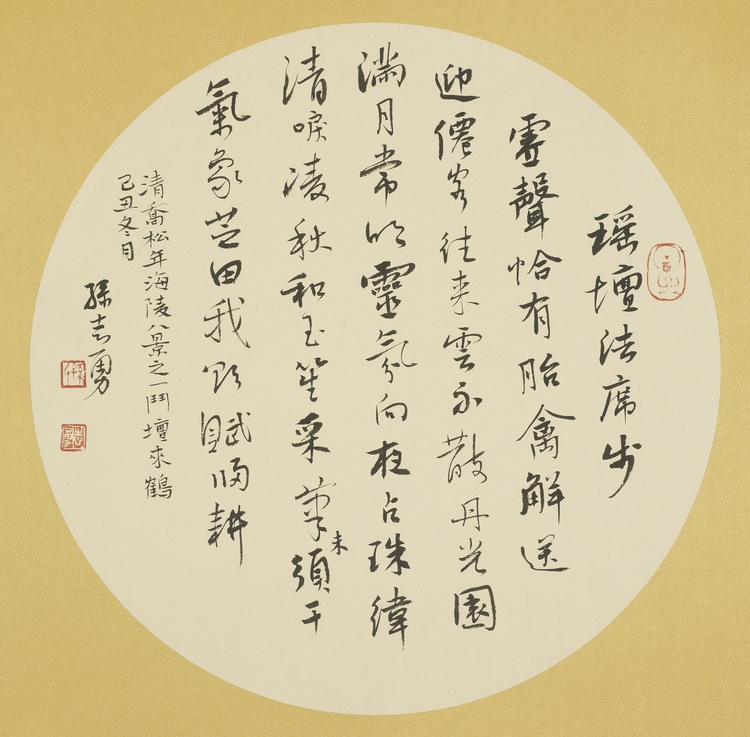 瑶壇法席步
虛聲恰有胎禽解送
迎僊客往来雲不散丹光圓
滿月常明靈氛向夜占珠緯
清唳凌秋和玉笙采筆未須干
氣象芝田我欲賦歸耕
清喬松年海陵八景之一鬥壇來鶴
己丑冬月
孫志勇